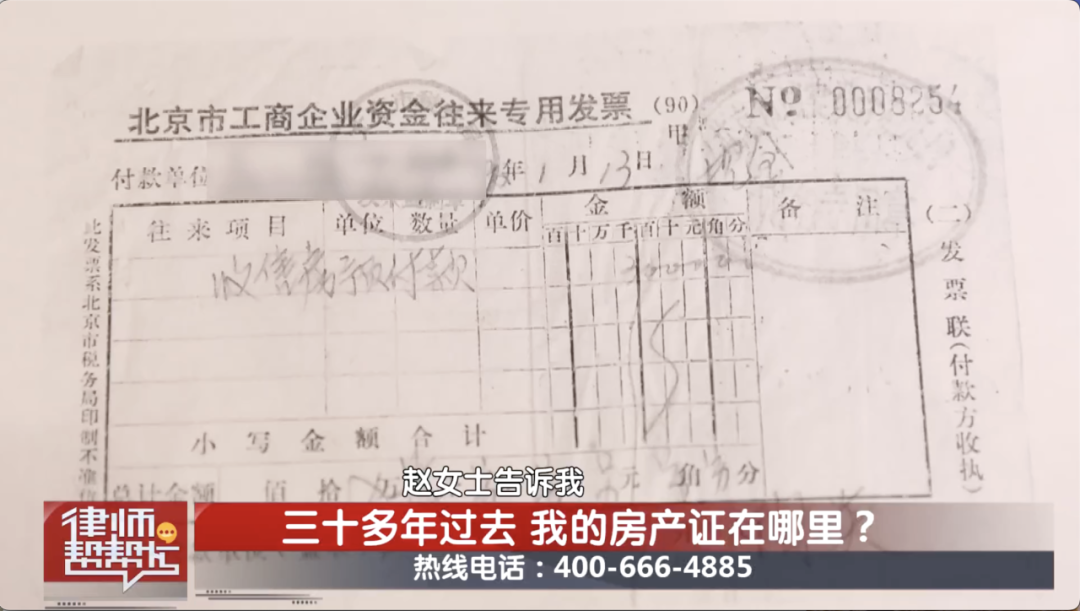 北京市工商企业资金往来专用发票 (90) № 0008254
甲
付款单位 年1月13日 现金
往来项目 单位 数量 单价 金额 备注
百十万千百十元角分
收售房预付款
小写金额合计
总计金额 佰拾 元 角 分
此发票系北京市税务局印制不准
(二)发票联(付款方收执)
赵女士告诉我
律师帮帮忙
三十多年过去 我的房产证在哪里?
热线电话:400-666-4885